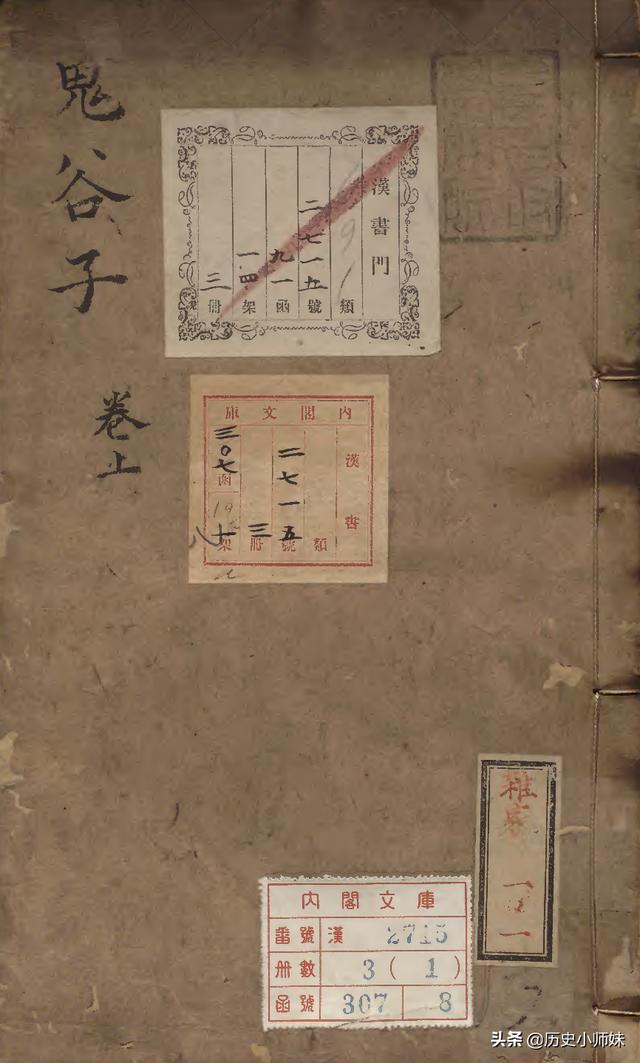 鬼谷子
卷上
漢書門
類
二七一五號
九一函
一四架
三冊
內閣文庫
漢書
類
二七一五號
三冊
三〇七函
十架
八
雜家
內閣文庫
番號 漢 2715
册數 3(1)
函號 307 8
头条 @历史小师妹